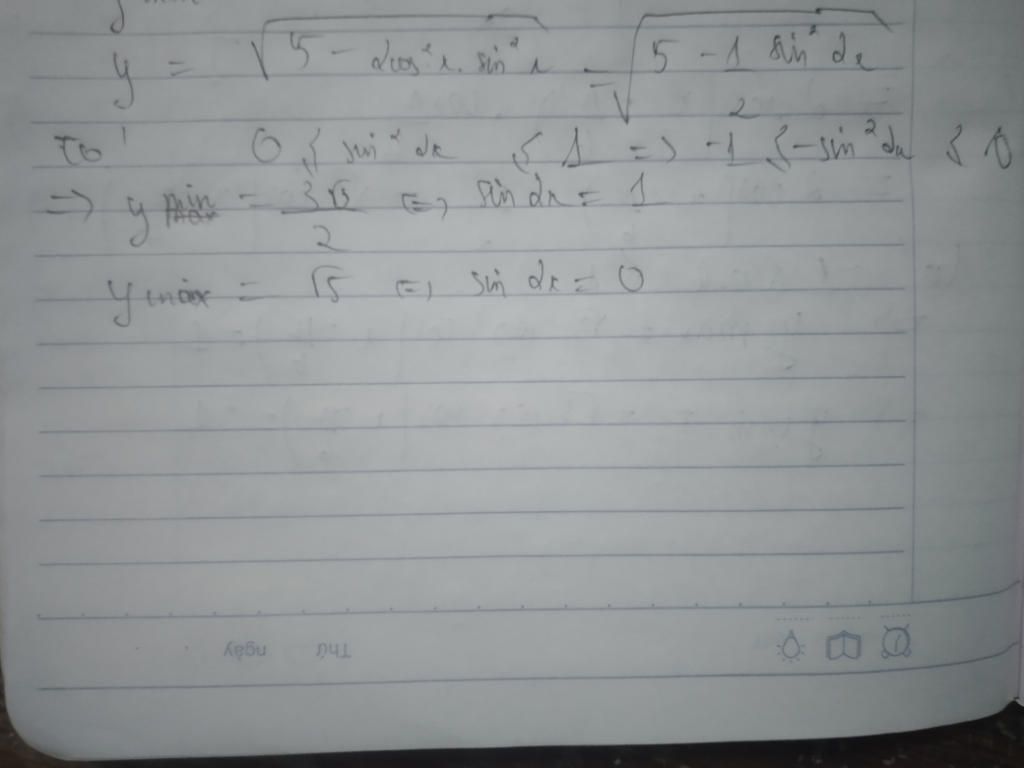 y = √(5 - 2cos²x.sin²x) = √(5 - 1/2 sin²2x)
Ta có 0 ≤ sin²2x ≤ 1 => -1 ≤ -sin²2x ≤ 0
=> y min = 3√5/2 <=> sin2x = 1
y max = √5 <=> sin2x = 0
Thứ ngày